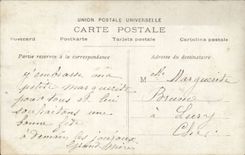 UNION POSTALE UNIVERSELLE
CARTE POSTALE
Postcard Postkarte Tarjeta postale Cartolina postale
Partie réservée à la correspondance
Adresse du destinataire
j'embrasse ma
petite marguerite
pour tous et lui
souhaitons une
bonne fête
à demain les joujoux
Grand mère
Mlle Marguerite
à Lury
Cher